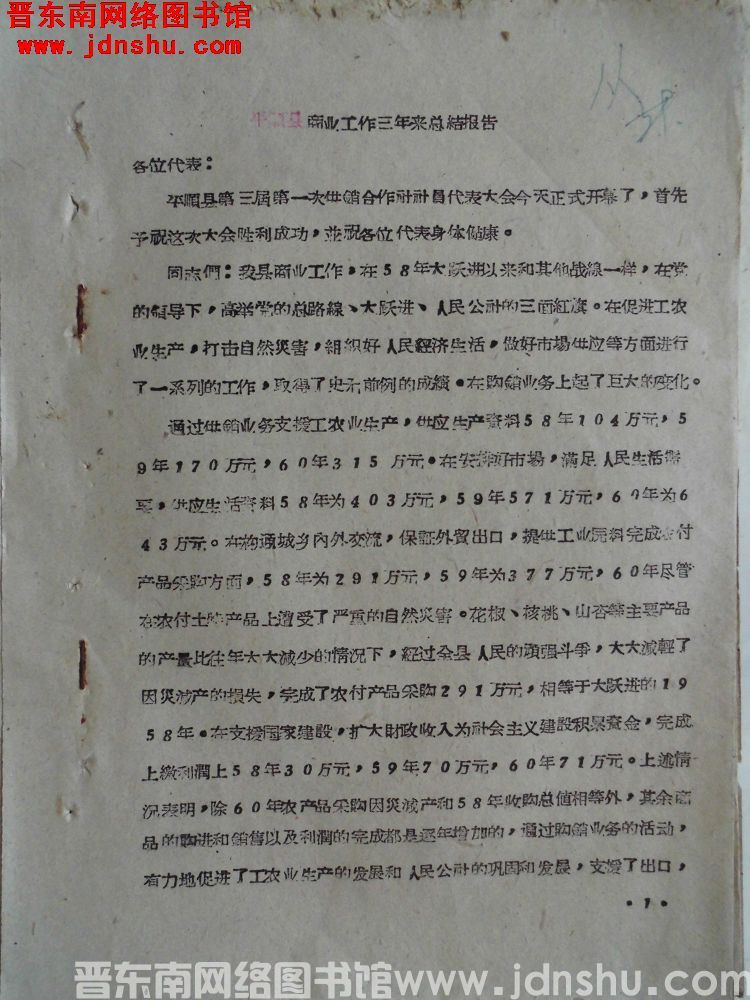 晋东南网络图书馆
www.jdnshu.com
商业工作三年来总結报告
各位代表：
平順县第三屆第一次供銷合作社社員代表大会今天正式开幕了，首先
予祝这次大会胜利成功，並祝各位代表身体健康。
同志們：我县商业工作，在58年大跃进以来和其他战線一样，在党
的領导下，高举党的总路線、大跃进、人民公社的三面紅旗。在促进工农
业生产，打击自然災害，組織好人民經济生活，做好市場供应等方面进行
了一系列的工作，取得了史无前例的成績。在购銷业务上起了巨大的变化。
通过供銷业务支援工农业生产，供应生产資料58年104万元，5
9年170万元，60年315万元。在安排好市場，满足人民生活需
要，供应生活資料58年为403万元，59年571万元，60年为6
43万元。在沟通城乡内外交流，保証外貿出口，提供工业原料完成农付
产品采购方面，58年为291万元，59年为377万元，60年尽管
在农付土特产品上遭受了严重的自然災害。花椒、核桃、山杏等主要产品
的产量比往年大大减少的情况下，經过全县人民的頑强斗爭，大大減輕了
因災減产的损失，完成了农付产品采购291万元，相等于大跃进的19
58年。在支援国家建設，扩大財政收入为社会主义建設积累資金，完成
上繳利潤上58年30万元，59年70万元，60年71万元。上述情
况表明，除60年农产品采购因災減产和58年收购总值相等外，其余商
品的购进和銷售以及利潤的完成都是逐年增加的，通过购銷业务的活动，
有力地促进了工农业生产的发展和人民公社的巩固和发展，支援了出口，
·1·
晋东南网络图书馆www.jdnshu.com